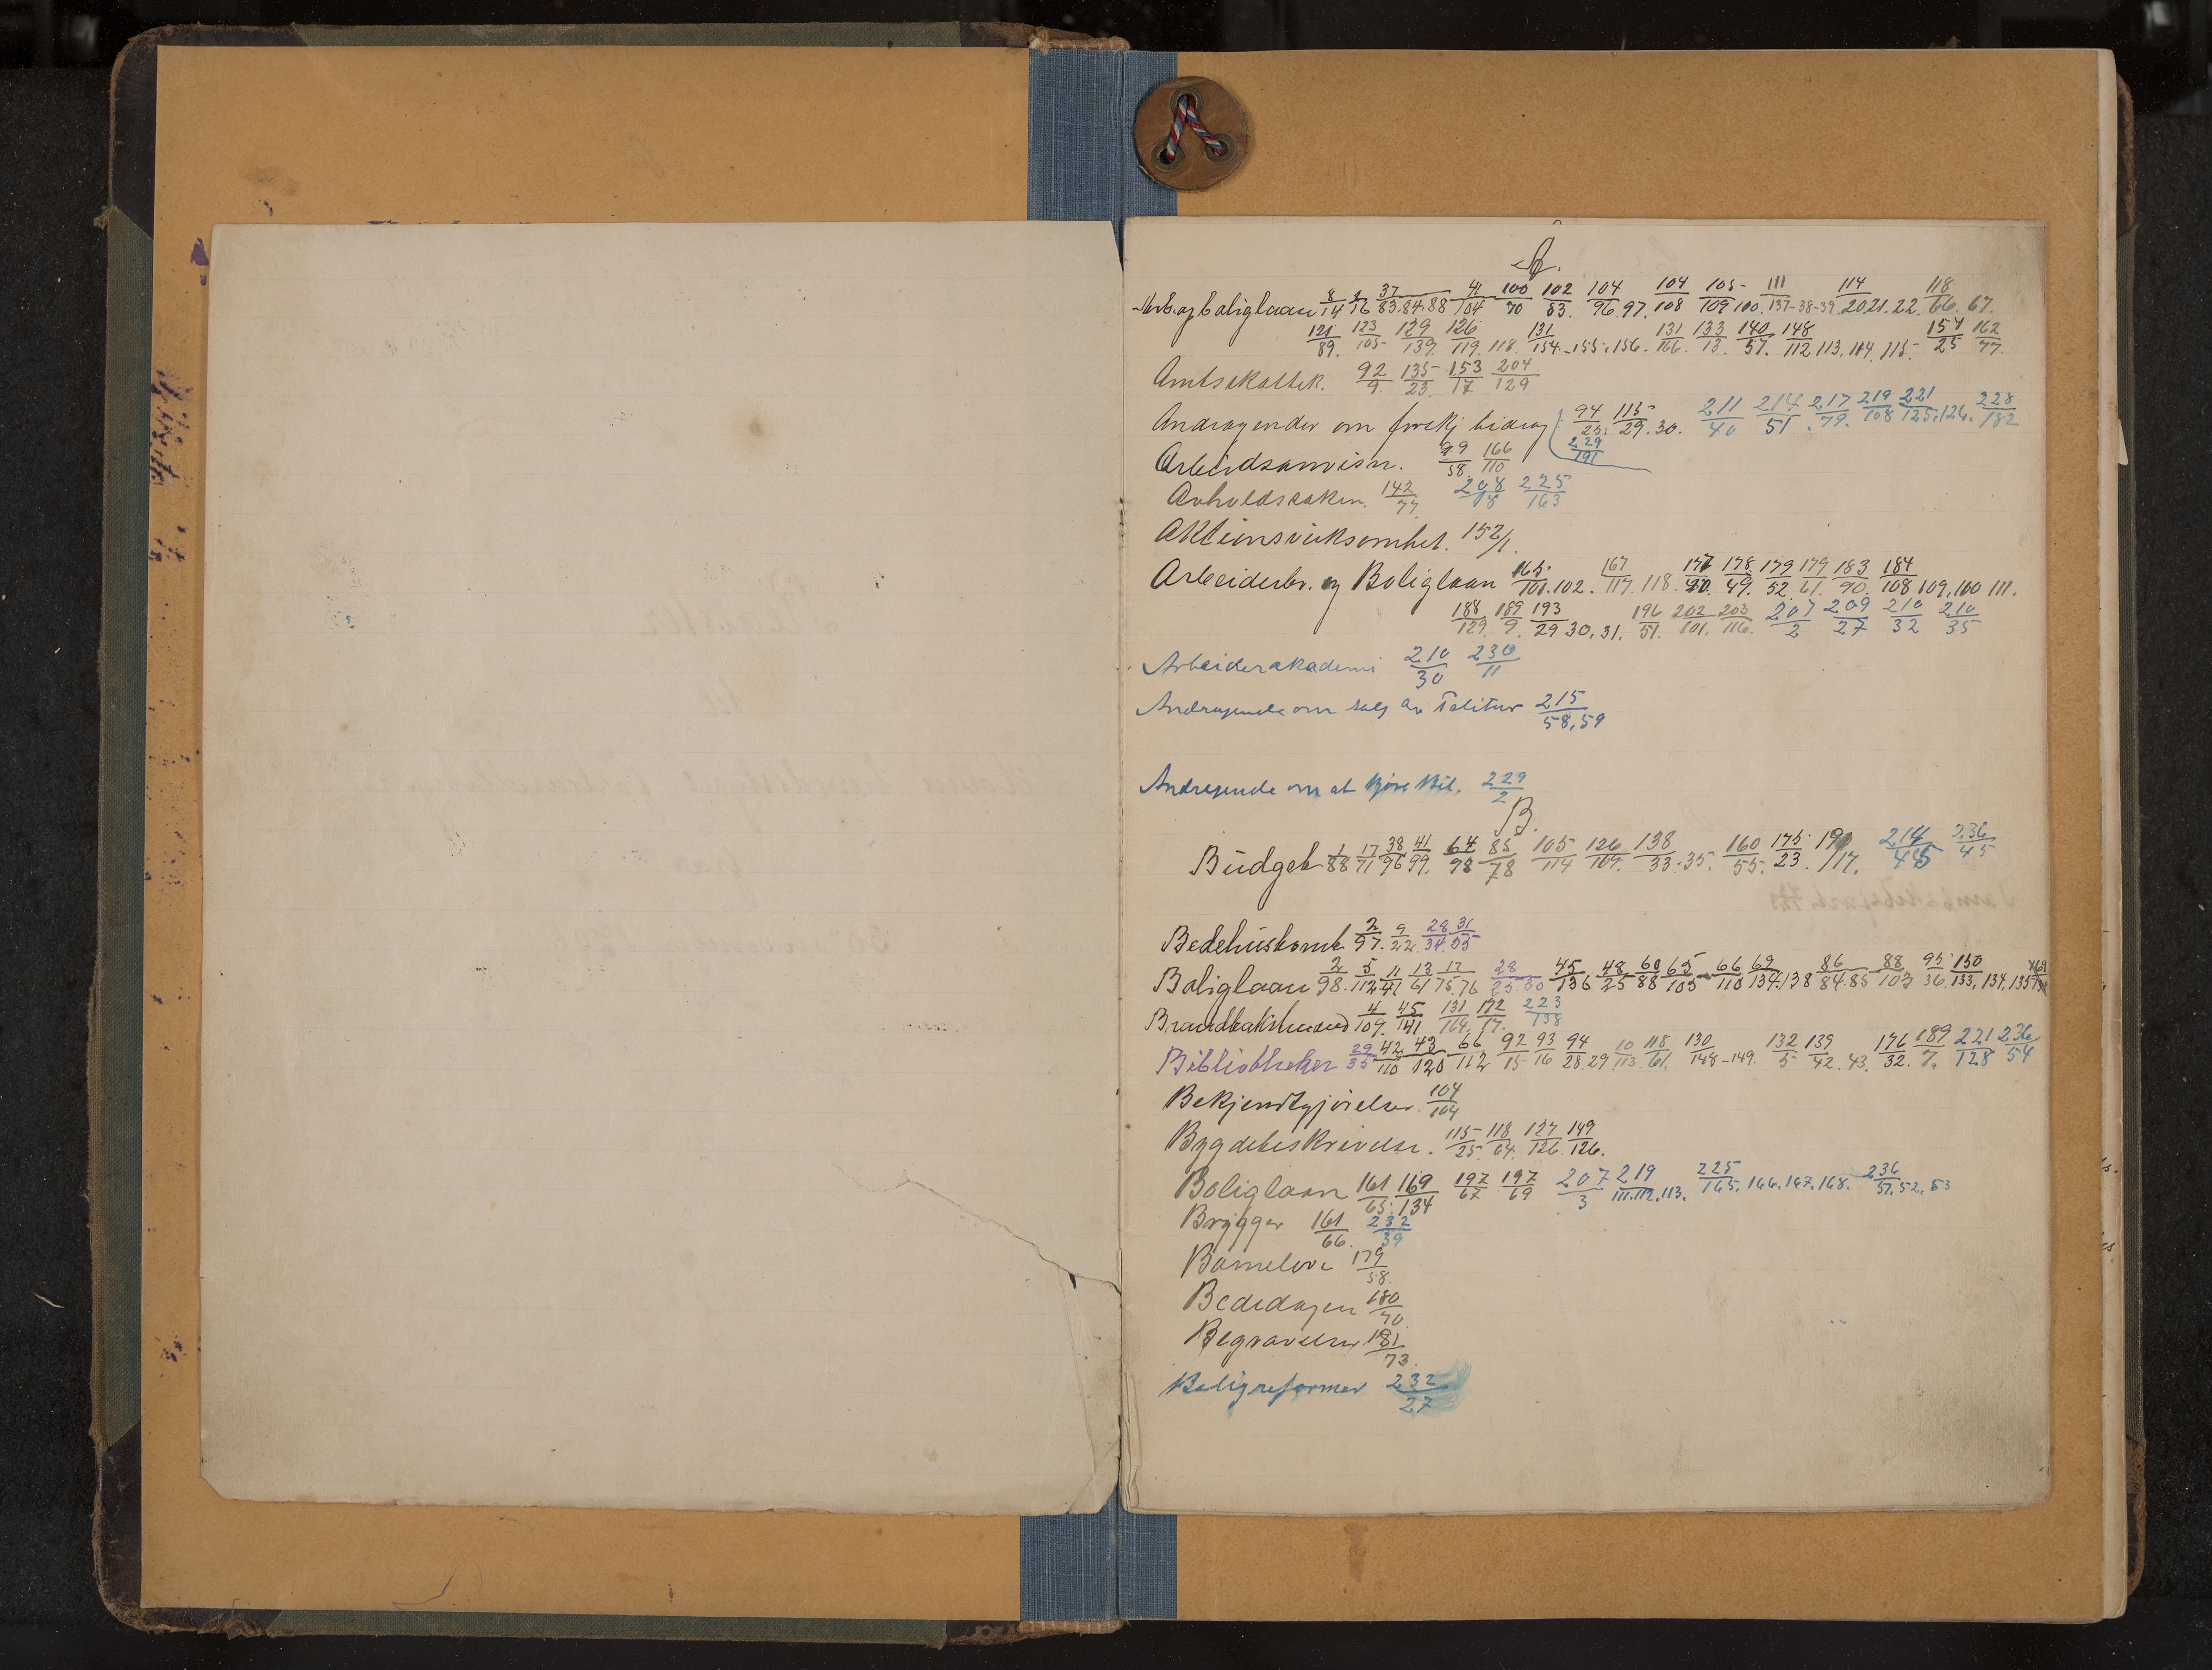 A.
Arb. og boliglaan 8/14 37/83.84.88 41/104 100/70 102/83. 104/96.97. 104/108 105/109 100. 111/137-38-39 114/2021.22. 118/66. 67.
121/89. 123/105 129/139. 126/119. 118. 131/154.-155.156. 131/166. 133/13. 140/57. 148/112 113. 114. 115. 154/25 162/77.
Amtskattek. 92/9. 135/23. 153/17 204/129
Andragender om forskj bidrag 94/25. 115/29.30. 211/40 214/51. 217/79. 219/108 221/125,126. 228/182
229/191
Arbeidsanvisn. 99/58. 166/110
Avholdssaken. 142/77. 208/18 225/163
Aktionsvirksomhet. 152/1.
Arbeiderbr. og Boliglaan 165./101.102. 167/117. 118. 178/49. 179/52. 179/61. 183/90. 184/108 109, 100 111.
188/129. 189/9. 193/29 30, 31. 196/51. 202/101. 203/116. 207/2 209/27 210/32 210/35
Arbeiderakademi 210/30 230/11
Andragende om salg av 215/58,59
Andragende om at kjøre Bil. 229/2
B.
Budget 1/88 17/71 38/96 41/99. 64/98 85/78 105/114 126/109. 138/33.35. 160/55. 175/23. 190/17. 214/45 236/45
Bedehuskomt 2/97. 9/22. 28/34. 31/55
Boliglaan 2/98. 5/112 11/41 13/61 17/75.76 28/25.30 45/136 48/25 60/88 65/105 66/110 69/134.138 86/84.85 88/103 95/36. 150/133, 134, 135
4/104. 45/141 131/164. 172/17. 223/138
Bibliotheker 29/35 42/110 43/120 66/112 92/15 93/16 94/28.29 10/113. 118/61. 130/148-149. 132/5 139/42. 43. 176/32. 189/7. 221/128 236/54
Bekjendtgjørelser. 104/104
Bygdebeskrivelse. 115/25. 118/64. 127/126 149/126.
Boliglaan 161/65. 169/134 197/67 197/69 207/3 219/111.112.113. 225/165, 166.167.168. 236/51,52,53
Brygger 161/66. 232/39
Barnelove 179/58.
Bededagen 180/70.
Begravelser 181/73.
Boligreformer 232/27